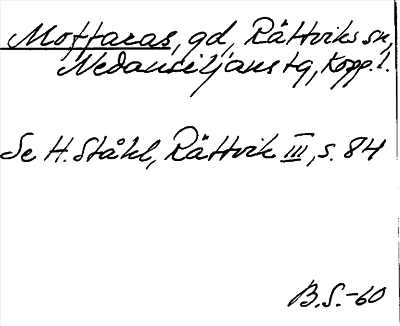 Moffaras, gd, Rättviks sn,
Nedansiljans tg, Kopp. l.
Se H. Ståhl, Rättvik III, s. 84
B.S.-60